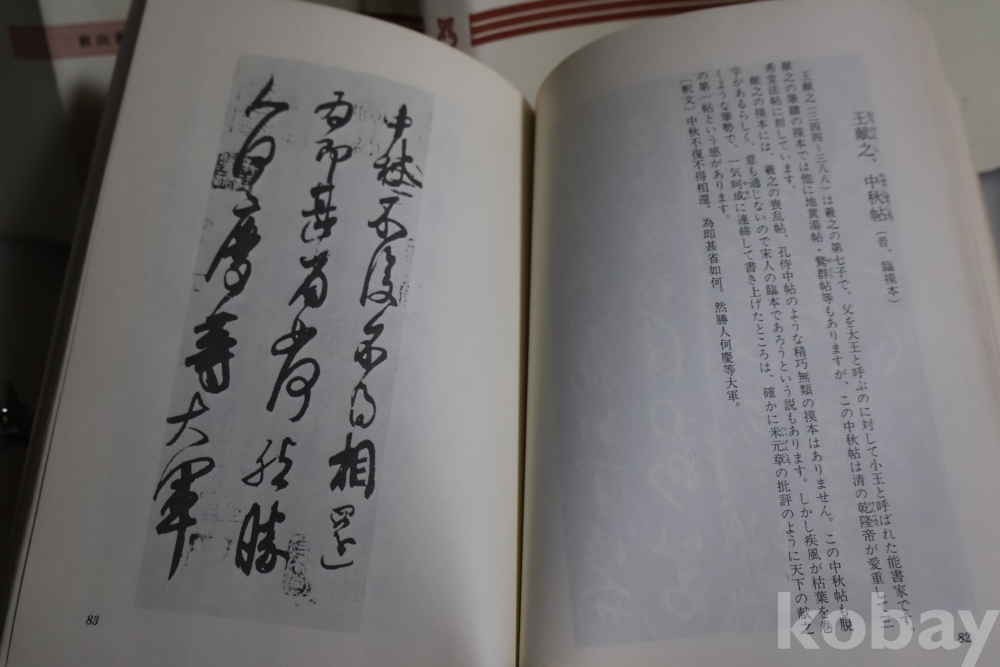 王献之、中秋帖（晋、臨摸本）
王献之（三四四～三八八）は羲之の第七子で、父を大王と呼ぶのに対して小王と呼ばれた能書家です。
献之の筆蹟の摸本では他に地黄湯帖・鵞群帖等もありますが、この中秋帖は清の乾隆帝が愛重して三
希堂法帖に刻しています。
献之の摸本には、羲之の喪乱帖、孔侍中帖のような精巧無類の摸本はありません。この中秋帖も脱
字があるらしく、意も通じないので宋人の臨本であろうという説もあります。しかし疾風が枯葉を巻
くような筆勢で、一気呵成に連綿して書き上げたところは、確かに米元章の批評のように天下の献之
の第一帖という感があります。
（釈文）中秋不復不得相還。為即甚省如何。然勝人何慶等大軍。
82
中秋不復不得相還
為即甚省如何然勝
人何慶等大軍
83
kobay